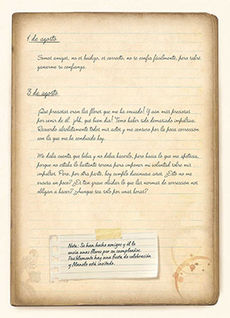 1 de agosto
Somos amigos, no es huidizo, es correcto, no se confía fácilmente, pero sabré
ganarme su confianza.
3 de agosto
¡Qué preciosas eran las flores que me ha enviado! Y aún más preciosas
por venir de él. ¡Ah, qué bien día! Temo haber sido demasiado impulsiva.
Recuerdo absolutamente todos mis actos y me censuro por la poca corrección
con la que me he conducido hoy.
Me daba cuenta que debía y no debía hacerlo, pero hacía lo que me apetecía,
porque no estaba lo bastante serena para imponer mi voluntad sobre mis
impulsos. Pero, por otra parte, hoy cumplo diecinueve años. ¿Esto no me
excusa un poco? ¿Es tan grave olvidar lo que las normas de corrección nos
obligan a hacer? ¿Aunque sea solo por unas horas?
Nota: Se han hecho amigos y él le
envía unas flores por su cumpleaños.
Posiblemente hay una fiesta de celebración
y Manolo está invitado.